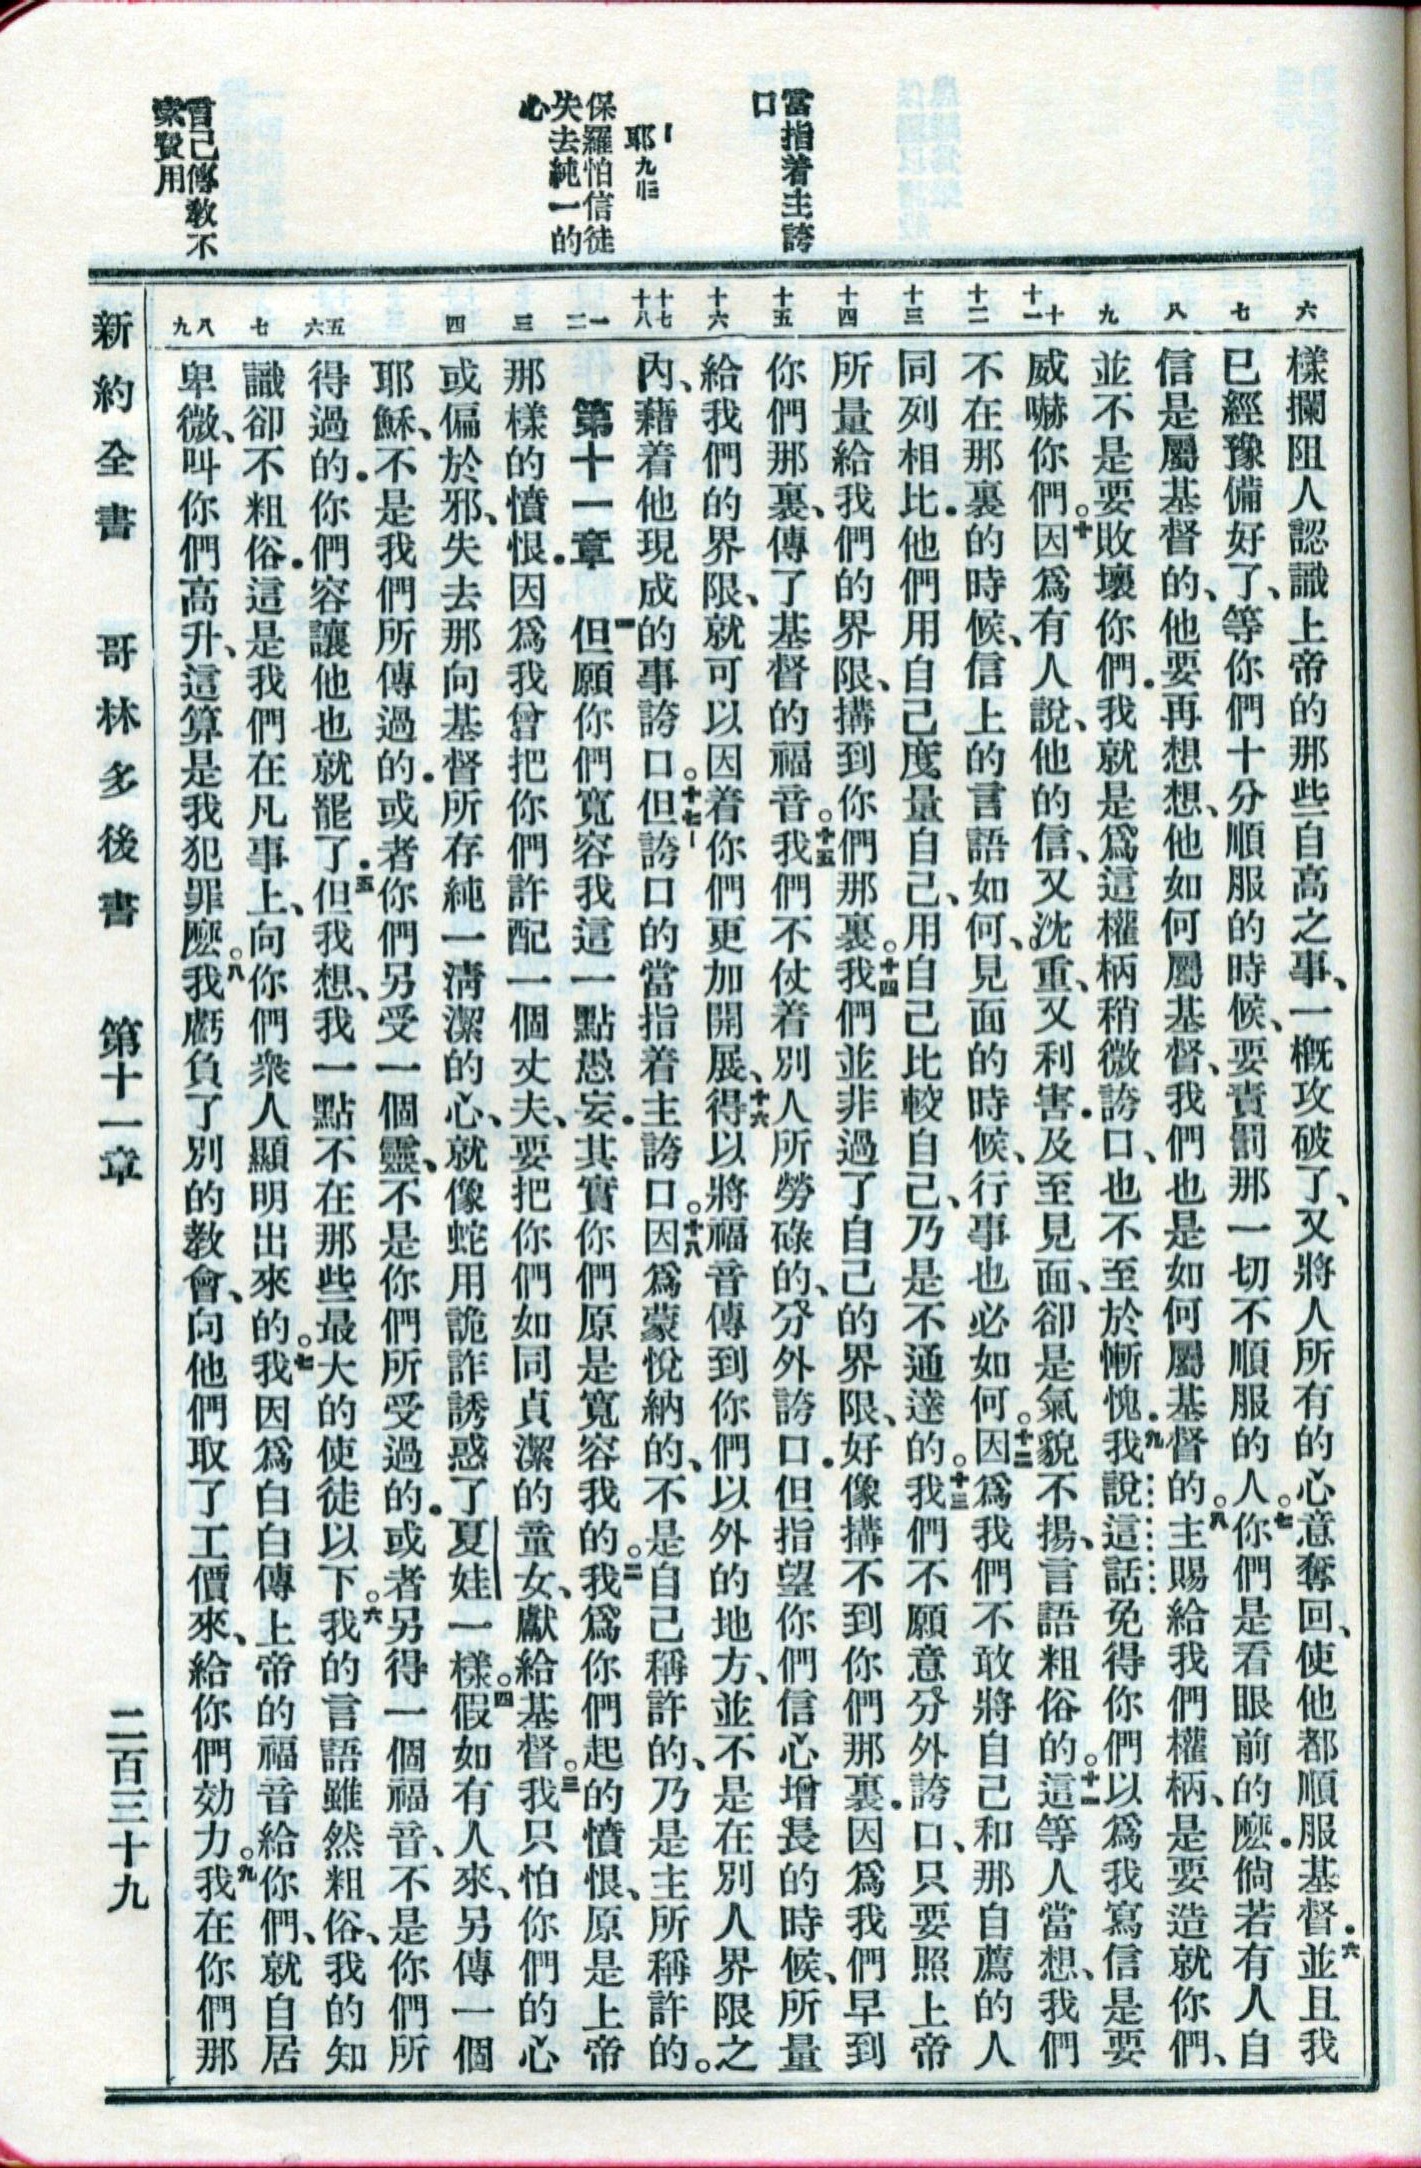 當指着主誇
口
耶九卌三
保羅怕信徒
失去純一的
心
自己傳教不
索費用
六
樣攔阻人認識上帝的那些自高之事、一概攻破了、又將人所有的心意奪回、使他都順服基督.六並且我
七
已經豫備好了、等你們十分順服的時候、要責罰那一切不順服的人。七你們是看眼前的麼.倘若有人自
八
信是屬基督的、他要再想想、他如何屬基督、我們也是如何屬基督的。八主賜給我們權柄、是要造就你們、
九
並不是要敗壞你們.我就是爲這權柄稍微誇口、也不至於慚愧.九我說這話免得你們以爲我寫信是要
十 十一
威嚇你們。十因爲有人說、他的信、又沈重、又利害.及至見面、卻是氣貌不揚、言語粗俗的。十一這等人當想、我們
十二
不在那裏的時候、信上的言語如何、見面的時候、行事也必如何。十二因爲我們不敢將自己和那自薦的人
十三
同列相比.他們用自己度量自己、用自己比較自己、乃是不通達的。十三我們不願意分外誇口、只要照上帝
十四
所量給我們的界限、搆到你們那裏。十四我們並非過了自己的界限、好像搆不到你們那裏.因爲我們早到
十五
你們那裏、傳了基督的福音。十五我們不仗着別人所勞碌的、分外誇口.但指望你們信心增長的時候、所量
十六
給我們的界限、就可以因着你們更加開展、十六得以將福音傳到你們以外的地方、並不是在別人界限之
十七 十八
內、藉着他現成的事誇口。十七但誇口的當指着主誇口。十八因爲蒙悅納的、不是自己稱許的、乃是主所稱許的。
一 二
第十一章 一但願你們寬容我這一點愚妄.其實你們原是寬容我的。二我爲你們起的憤恨、原是上帝
三
那樣的憤恨.因爲我曾把你們許配一個丈夫、要把你們如同貞潔的童女、獻給基督。三我只怕你們的心
四
或偏於邪、失去那向基督所存純一清潔的心、就像蛇用詭詐誘惑了夏娃一樣。四假如有人來、另傳一個
耶穌、不是我們所傳過的.或者你們另受一個靈、不是你們所受過的.或者另得一個福音、不是你們所
五 六
得過的.你們容讓他也就罷了.五但我想、我一點不在那些最大的使徒以下。六我的言語雖然粗俗、我的知
七
識卻不粗俗.這是我們在凡事上、向你們衆人顯明出來的。七我因爲白白傳上帝的福音給你們、就自居
八 九
卑微、叫你們高升、這算是我犯罪麼。八我虧負了別的教會、向他們取了工價來、給你們効力。九我在你們那
新約全書 哥林多後書 第十一章 二百三十九